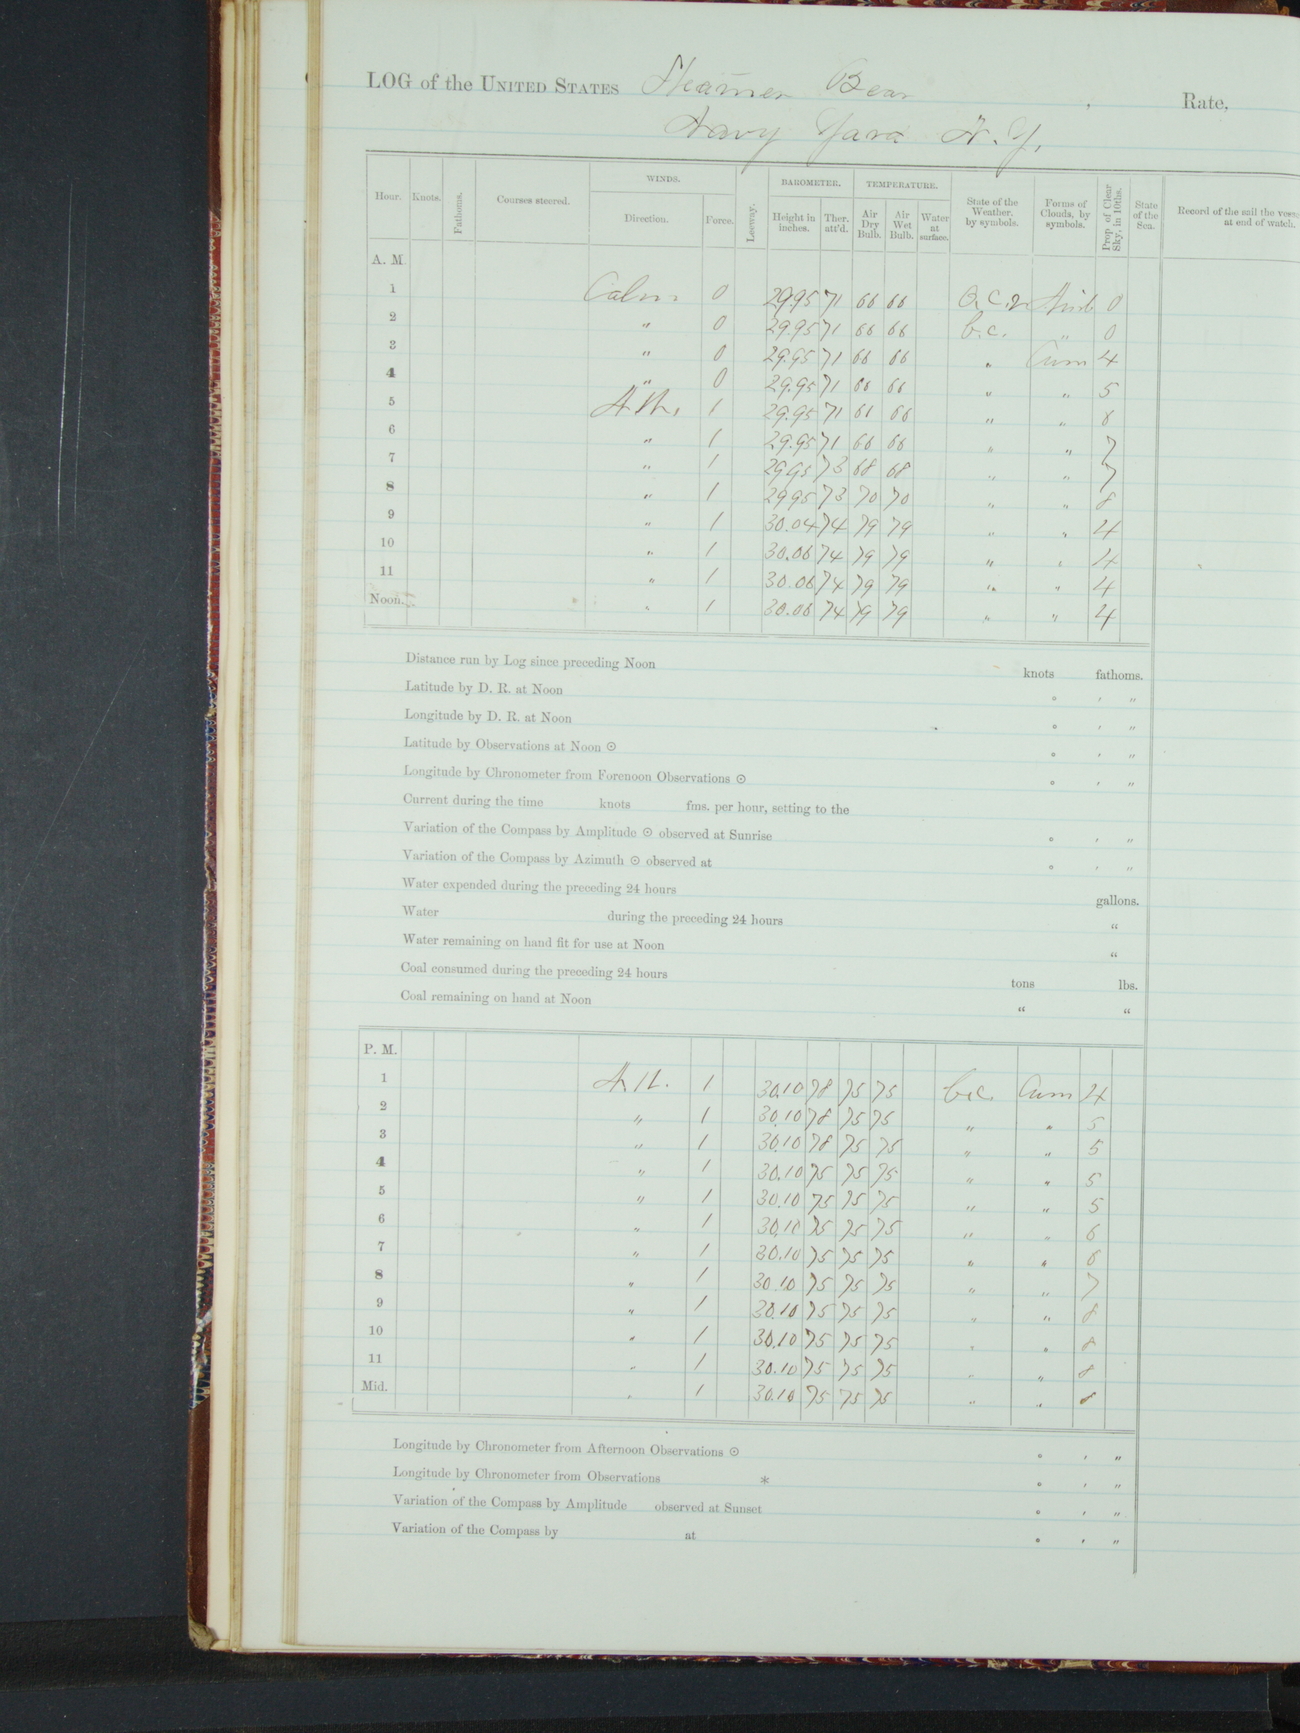 LOG of the UNITED STATES Steamer Bear , Rate,
Navy Yard N.Y.
Hour. Knots. Fathoms. Courses steered. WINDS. Direction. Force. Leeway. BAROMETER. Height in inches. Ther. att'd. TEMPERATURE. Air Dry Bulb. Air Wet Bulb. Water at surface. State of the Weather, by symbols. Forms of Clouds, by symbols. Prop. of Clear Sky, in 10ths. State of the Sea. Record of the sail the vesse at end of watch.
A. M
1 Calm 0 29.95 71 66 66 0
2 " 0 29.95 71 66 66 b.c. " 0
3 " 0 29.95 71 66 66 " Cum 4
4 " 0 29.95 71 66 66 " " 5
5 1 29.95 71 61 66 " " 6
6 " 1 29.95 71 66 66 " " 7
7 " 1 29.95 73 68 68 " " 7
8 " 1 29.95 73 70 70 " " 8
9 " 1 30.04 74 79 79 " " 4
10 " 1 30.06 74 79 79 " " 4
11 " 1 30.06 74 79 79 " " 4
Noon. " 1 30.06 74 79 79 " " 4
Distance run by Log since preceding Noon knots fathoms.
Latitude by D. R. at Noon ° ' "
Longitude by D. R. at Noon ° ' "
Latitude by Observations at Noon ☉ ° ' "
Longitude by Chronometer from Forenoon Observations ☉ ° ' "
Current during the time knots fms. per hour, setting to the
Variation of the Compass by Amplitude ☉ observed at Sunrise ° ' "
Variation of the Compass by Azimuth ☉ observed at ° ' "
Water expended during the preceding 24 hours gallons.
Water during the preceding 24 hours "
Water remaining on hand fit for use at Noon "
Coal consumed during the preceding 24 hours tons lbs.
Coal remaining on hand at Noon " "
P. M.
1 1 30.10 78 75 75 b.c. Cum 4
2 " 1 30.10 78 75 75 " " 5
3 " 1 30.10 78 75 75 " " 5
4 " 1 30.10 75 75 75 " " 5
5 " 1 30.10 75 75 75 " " 5
6 " 1 30.10 75 75 75 " " 6
7 " 1 30.10 75 75 75 " " 6
8 " 1 30.10 75 75 75 " " 7
9 " 1 30.10 75 75 75 " " 8
10 " 1 30.10 75 75 75 " " 8
11 " 1 30.10 75 75 75 " " 8
Mid. " 1 30.10 75 75 75 " " 8
Longitude by Chronometer from Afternoon Observations ☉ ° ' "
Longitude by Chronometer from Observations * ° ' "
Variation of the Compass by Amplitude observed at Sunset ° ' "
Variation of the Compass by at ° ' "